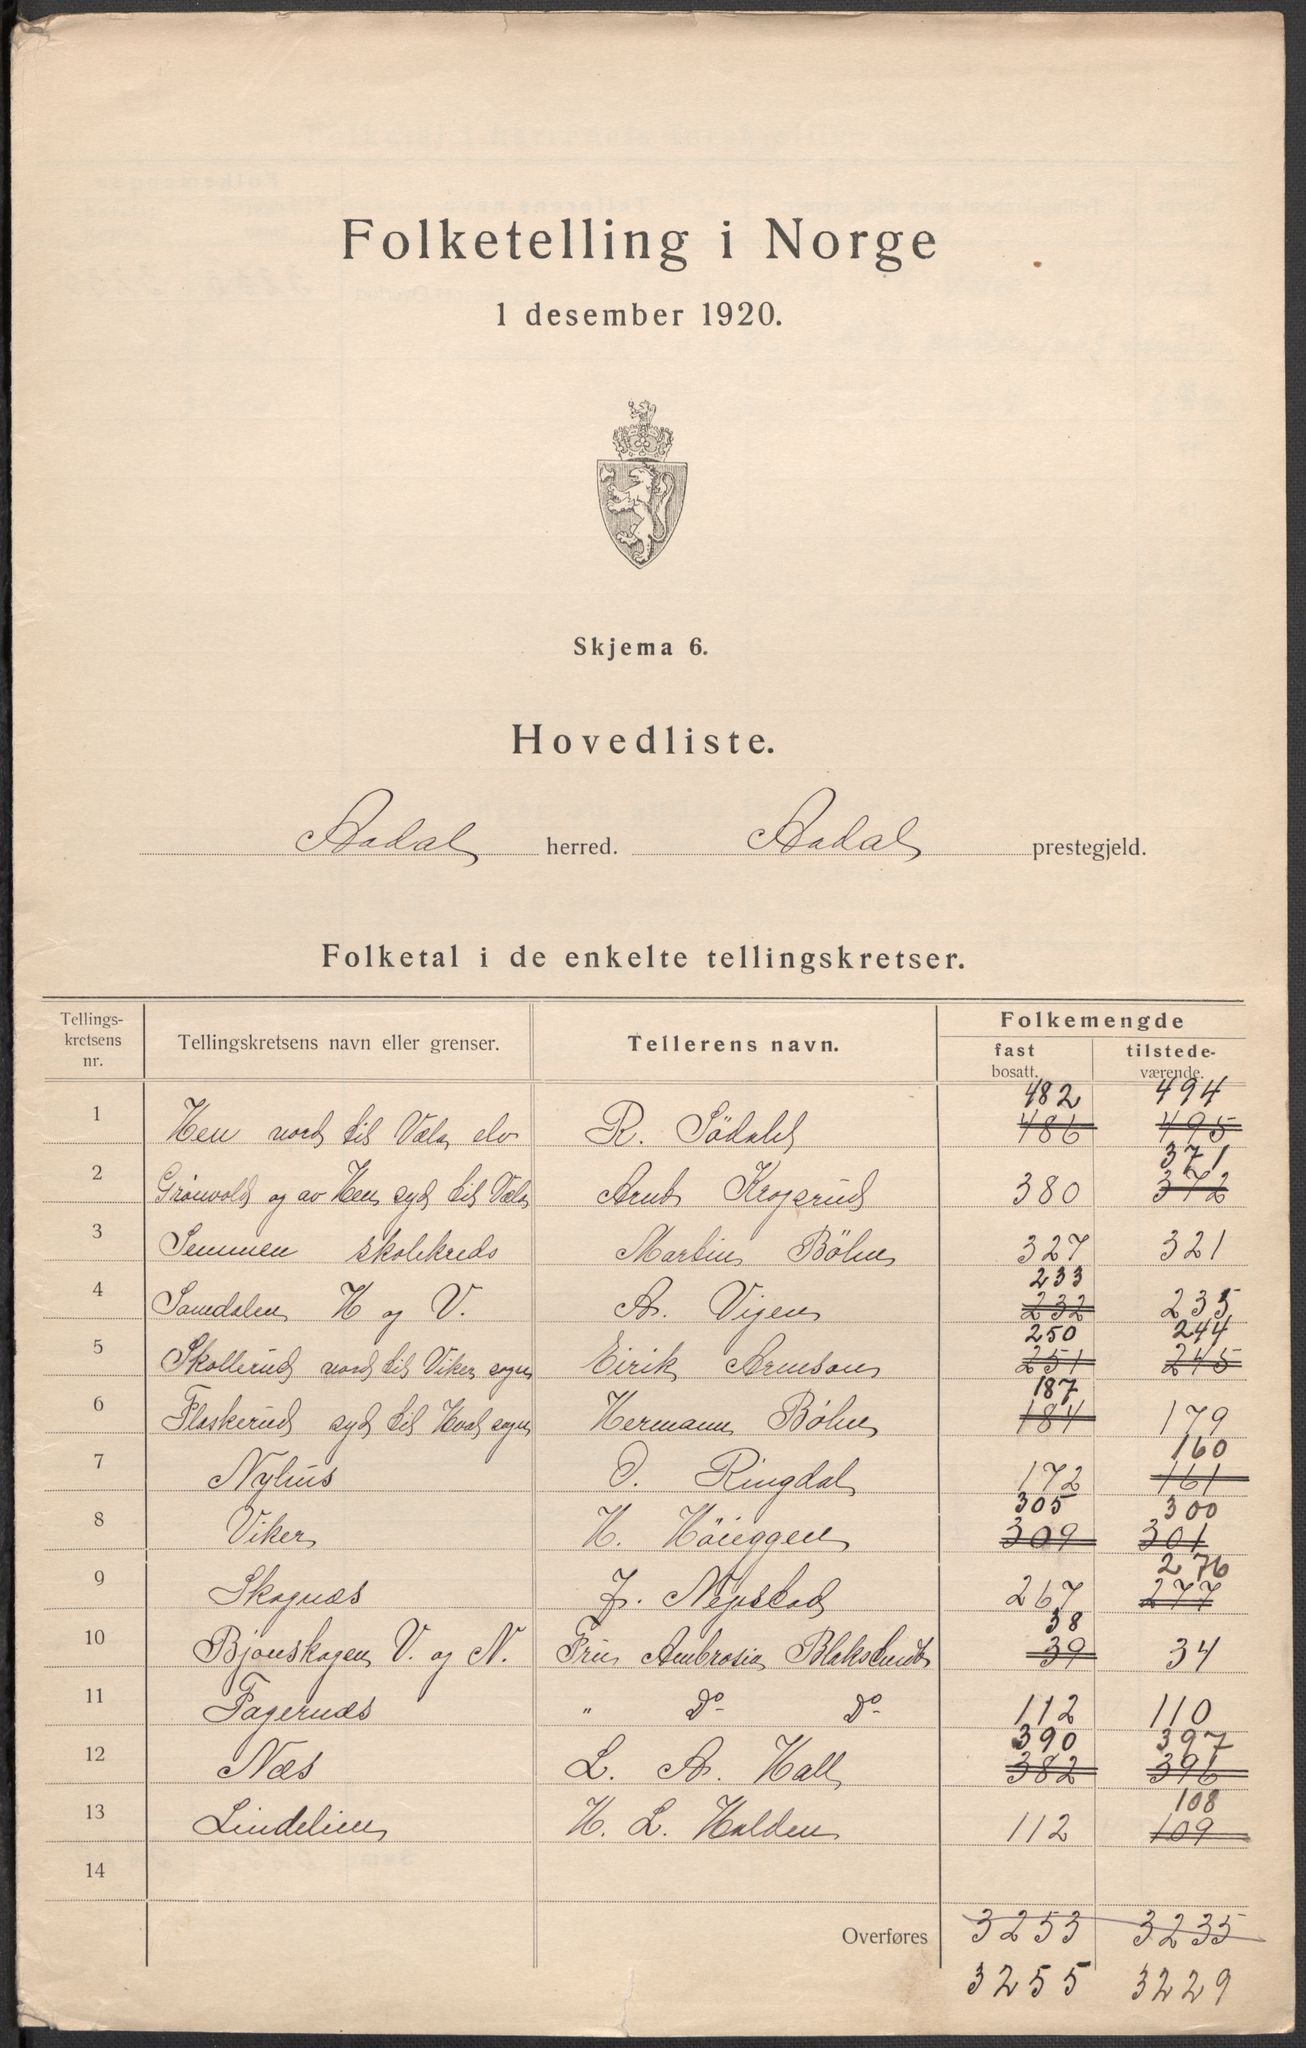 Folketelling i Norge
1 desember 1920.
Skjema 6.
Hovedliste.
Aadal herred. Aadal prestegjeld.
Folketal i de enkelte tellingskretser.
Tellings-kretsens nr. Tellingskretsens navn eller grenser. Tellerens navn. Folkemengde
fast bosatt. tilstede-værende.
482 494
1 Hen nord til Væla elv R. Sødahl 486 495
371
2 Grönvold og av Hen syd til Væla Arnt Kropsrud 380 372
3 Semmen skolekreds Martin Böhn 327 321
233
4 Somdalen H og V. A. Vigen 232 235
250 244
5 Skollerud nord til Viker sogn Eirik Arneson 251 245
187
6 Flaskerud syd til Hval sogn Hermann Böhn 184 179
160
7 Nyhus O. Ringdal 172 161
305 300
8 Viker H. Höieggen 309 301
276
9 Skognæs J. Nepstad 267 277
38
10 Bjonskogen V. og N. Fru Ambrosia Blakstvedt 39 34
11 Fagernæs " Do Do 112 110
390 397
12 Næs L. A. Hall 382 396
108
13 Lindelien H. L. Halden 112 109
14
Overføres 3253 3235
3255 3229